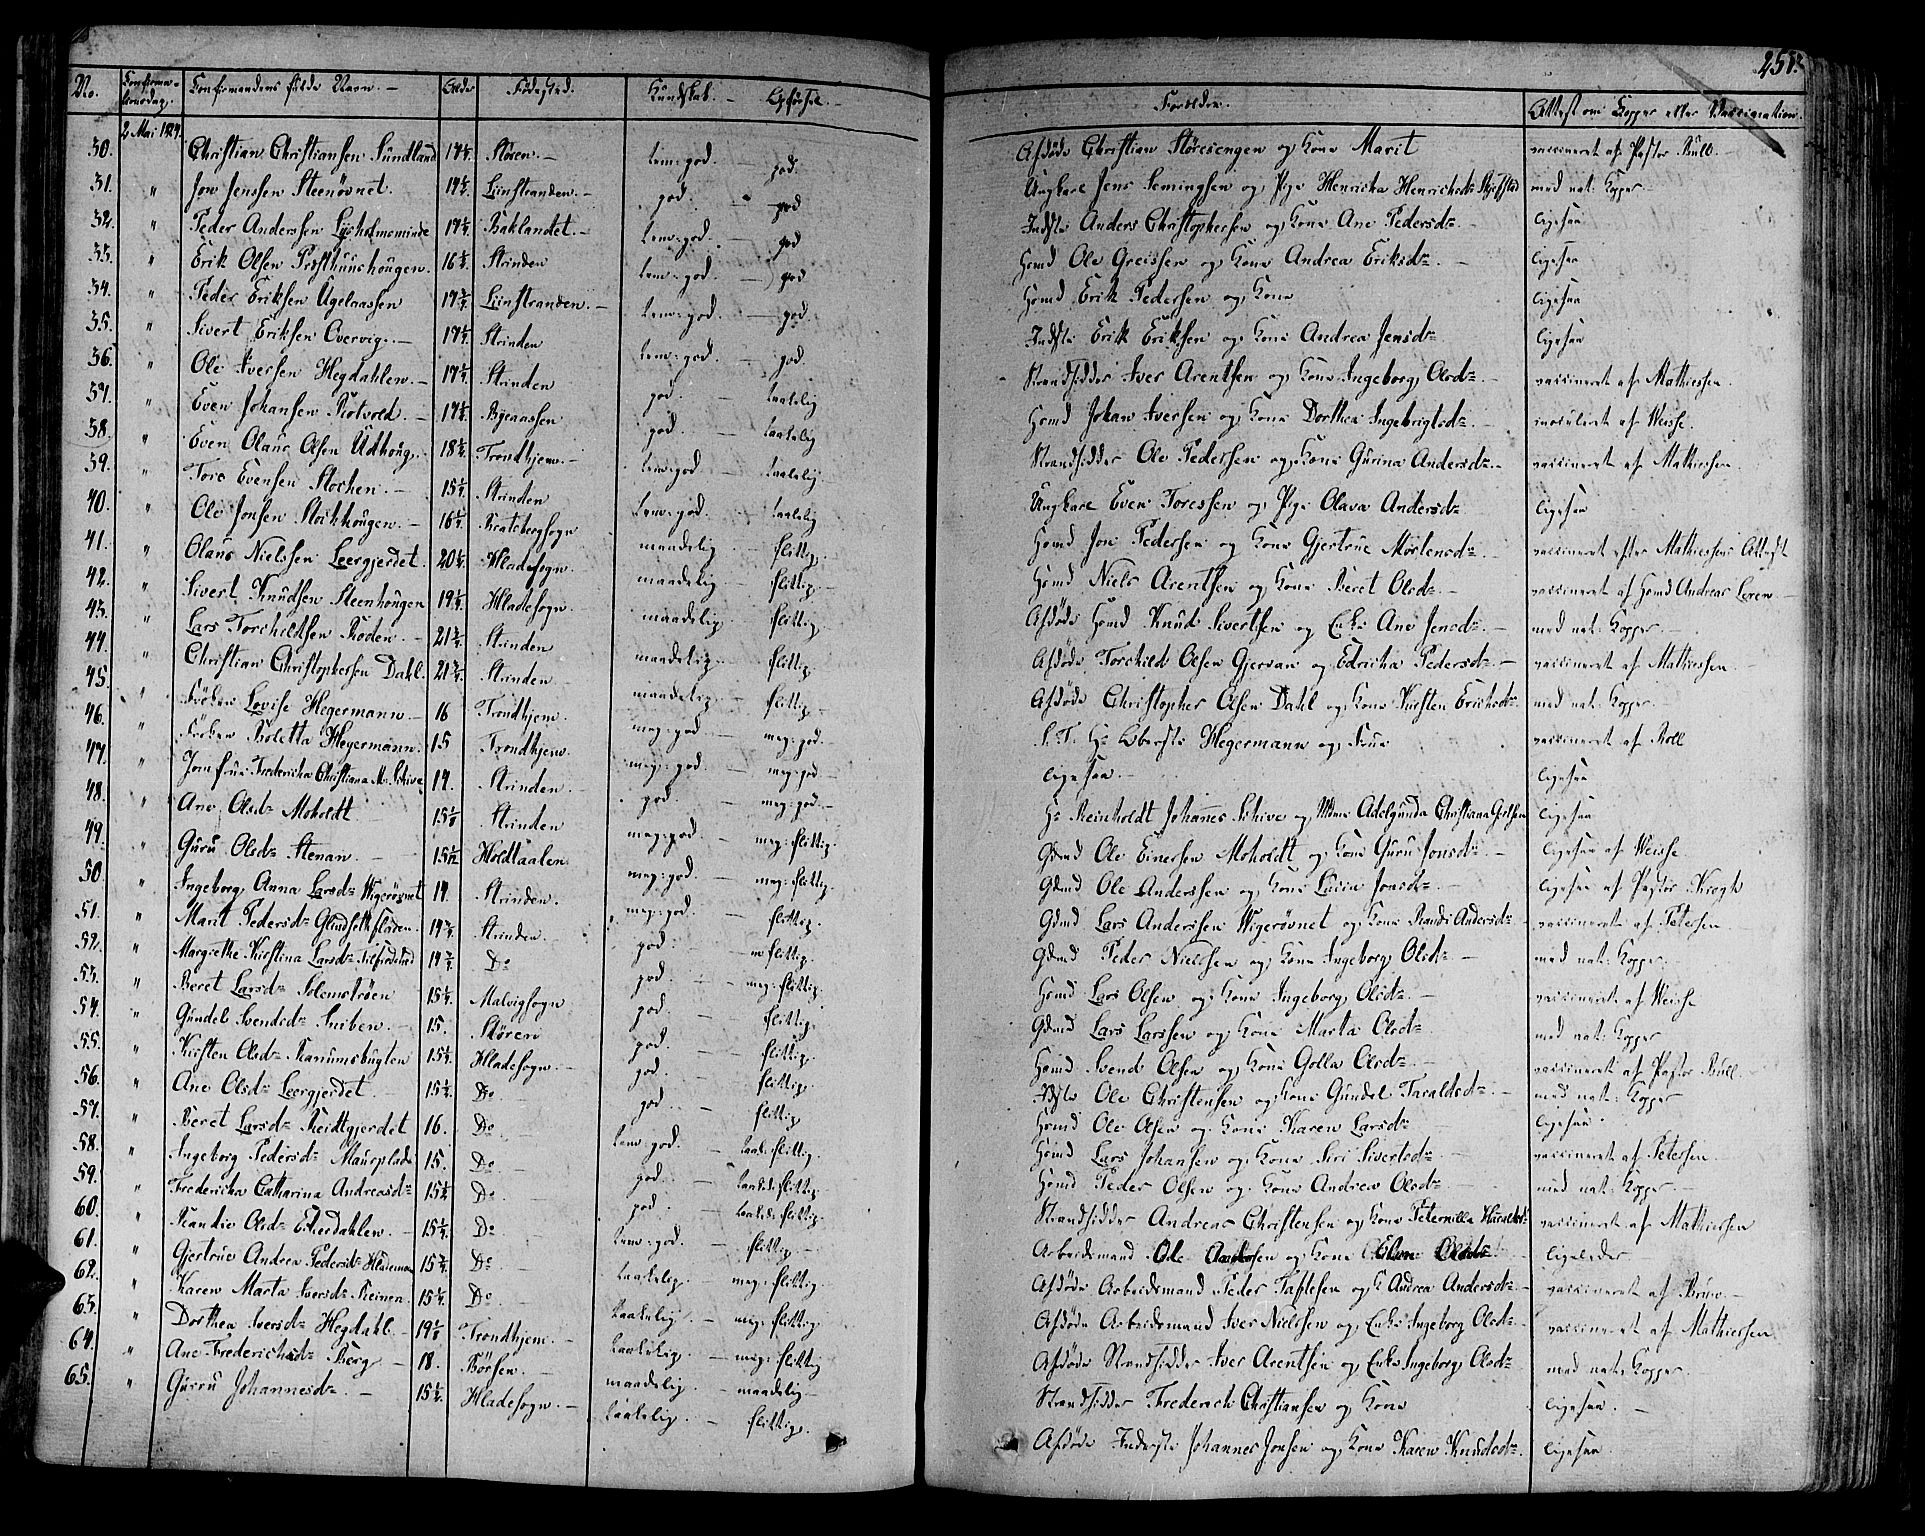 251.
No. Confirmationsdag. Confirmandens fulde Navn. — Alder Fødested. Kundskab. — Opførsel. — Forældre. Attest om Kopper eller Vaccination.
2 Mai 1824.
30. Christian Christiansen Sundland 17 Støren. — tem: god. — god. Afdøde Christian Støresengen og Kone Marit vaccineret af Pastor Bull. —
31. " Jon Jenssen Steenøvnet. 19 Leinstranden. — god. — god Ungkarl Jens Semingsen og Pige Henricka Henrichsdr med nat: Kopper —
32. " Peder Anderssen Lysholmsminde 17 Baklandet. — tem: god. — god Indste Anders Christophersen og Kone Ane Pedersdr. — ligesaa
33. " Erik Olsen Præsthuushougen. 16 Strinden tem: god. — god Huusmd Ole Greissen og Kone Andrea Eriksdr. — ligesaa
34. " Peder Eriksen Ugelaassen 17 Leinstranden. — tem: god. — god. Huusmd Erik Pedersen og Kone ligesaa
35. " Sivert Eriksen Overvig. — 17 Strinden tem: god. — god. Indste Erik Eriksen og Kone Andrea Jensdr ligesaa
36. " Ole Iversen Hegdahlen. — 17 Strinden god. — taalelig Strandsidder Iver Arentsen og Kone Ingeborg Olsdr. — vaccineret af Mathiessen.
37. " Even Johansen Rotvold. — 17 Byeaassen god. — taalelig Huusmd Johan Iversen og Kone Dorthea Ingebrigtsdr. inoculeret af Weisse.
38. " Even Olaus Olsen Udhoug. 18 Trondhjem. — tem: god — taalelig. Strandsidder Ole Pedersen og Kone Gurina Andersdr. — vaccineret af Mathiessen.
39. " Tore Evensen Stochen. — 15 Strinden tem: god. — taalelig Ungkarl Even Toressen og Pige Olava Andersdr ligesaa
40. " Ole Jonsen Stockhougen. — 16 Bratsbergsogn maadelig. — flittig. Huusmd Jon Pedersen og Kone Gjertrue Mortensdr. — vaccineret efter Mathiessens Attest
41. " Olaus Nielssen Leergjerdet. 20 Hladesogn. maadelig. — flittig. Huusmd Niels Arentsen og Kone Beret Olsdr. — vaccineret af Huusmd Andreas Leren. —
42. " Sivert Knudsen Steenhougen 19 Hladesogn. maadelig. — flittig. Afdøde Huusmd Knud Sivertsen og Enke Ane Jensdr. — med nat: Kopper. —
43. " Lars Torchildsen Roden. — 21 Strinden maadelig. — flittig. Afdøde Torchild Olsen Gjervan og Edricka Pedersdr. — vaccineret af Mathiessen. —
44. " Christian Christophersen Dahl. 21 Strinden. maadelig. — flittig. Afdøde Christopher Olsen Dahl og Kone Kirsten Erichsdr. med nat: Kopper. —
45. " Frøken Lovise Hegermann. — 16 Trondhjem. meg: god. — meg: god. S. T. Hr Oberste Hegermann og Frue vaccineret af Roll
46. " Frøken Boletta Hegermann. 15 Trondhjem. meg: god. — meg: god — ligesaa. — ligesaa
47. " Jomfrue Fredericka Christiana M. Schive 14. Strinden. god. — meg: god. — Hr Reinholdt Johannes Schive og Mdme Adelgunda Christiana ligesaa
48. " Ane Olsdr Moholdt 15 Strinden meg: god. — meg: flittig. Gdmd Ole Einersen Moholdt og Kone Guru Jonsdr. — ligesaa af Weisse
49. " Guru Olsdr Stenan. — 15 Holdtaalen meg: god. — meg: flittig. Gdmd Ole Anderssen og Kone Lucia Jonsdr. — ligesaa af Pastor Krogh
50. " Ingeborg Anna Larsdr Wigerøvnet 14 Strinden. meg: god. — flittig. Gdmd Lars Anderssen Wigerøvnet og Kone Randi Andersdr. — vaccineret af Petersen.
51. " Marit Pedersdr 14 Strinden. god. — m flittig. Gdmd Peder Nielssen og Kone Ingeborg Olsdr. — med nat: Kopper. —
52. " Margrethe Kirstina Larsdr 14 Do god. — meg: flittig. Huusmd Lars Olsen og Kone Ingeborg Olsdr. — vaccineret af Weisse
53. " Beret Larsdr Solemstrøen 15 Malvigsogn god. — flittig. Gdmd Lars Larssen og Kone Marta Olsdr. med nat: Kopper
54. " Gundel Svendsdr Sniben. — 15. Støren god. — flittig. Huusmd Svend Olsen og Kone Golla Olsdr. — vaccineret af Pastor Bull —
55. " Kirsten Olsdr Ranumsbugten 15 Hladesogn. — god. — flittig. Indste Ole Christensen og Kone Gundel Taraldsdr. — med nat: Kopper
56. " Ane Olsdr Leergjerdet. — 15 Do god. — flittig. Huusmd Ole Olsen og Kone Karen Larsdr — ligesaa. —
57. " Beret Larsdr Reidtgjerdet 16. Do tem: god. — taal: flittig. Huusmd Lars Johansen og Kone Siri Sivertsdr. — vaccineret af Petersen —
58. " Ingeborg Pedersdr Maurplads 15. Do god. — taalel: flittig. Huusmd Peder Olsen og Kone Andrea Olsdr. — med nat: Kopper. —
59. " Fredericka Catharina Andreasdr 15 Do god. — taalel: flittig. Strandsidder Andreas Christensen og Kone Peternilla Haraldsdr vaccineret af Mathiessen
60. " Randie Olsdr Ekledahlen. — 15 Do — tem: god. — flittig. — Arbeidsmand Ole Andersen og Kone Elen Olsdr ligeledes
61. " Gjertrue Andrea Pedersdr Hlademoen 15 Do taalelig. — meg: flittig. Afdøde Arbeidsmand Peder Taflesen og K. Andrea Andersdr. — vaccineret af Bruun. —
62. " Karen Marta Iversdr Reinen. 15 Do. taalelig. — meg: flittig. Afdøde Arbeidsmand Iver Nielssen og Enke Ingeborg Olsdr. vaccineret af Mathiessen
63. " Dorthea Iversdr Hegdahl. — 19 Trondhjem. — taalelig. — meg: flittig Afdøde Strandsidder Iver Arentsen og Enke Ingeborg Olsdr med nat: Kopper
64. " Ane Frederichsdr Berg — 18. Børsen. — maadelig. — maadelig — Strandsidder Frederich Christiansen og Kone ligesaa. —
65. " Guru Johannesdr. — 15 Hladesogn. — taalelig — flittig. Afdøde Inderste Johannes Jonsen og Kone Karen Knudsdr. ligesaa.